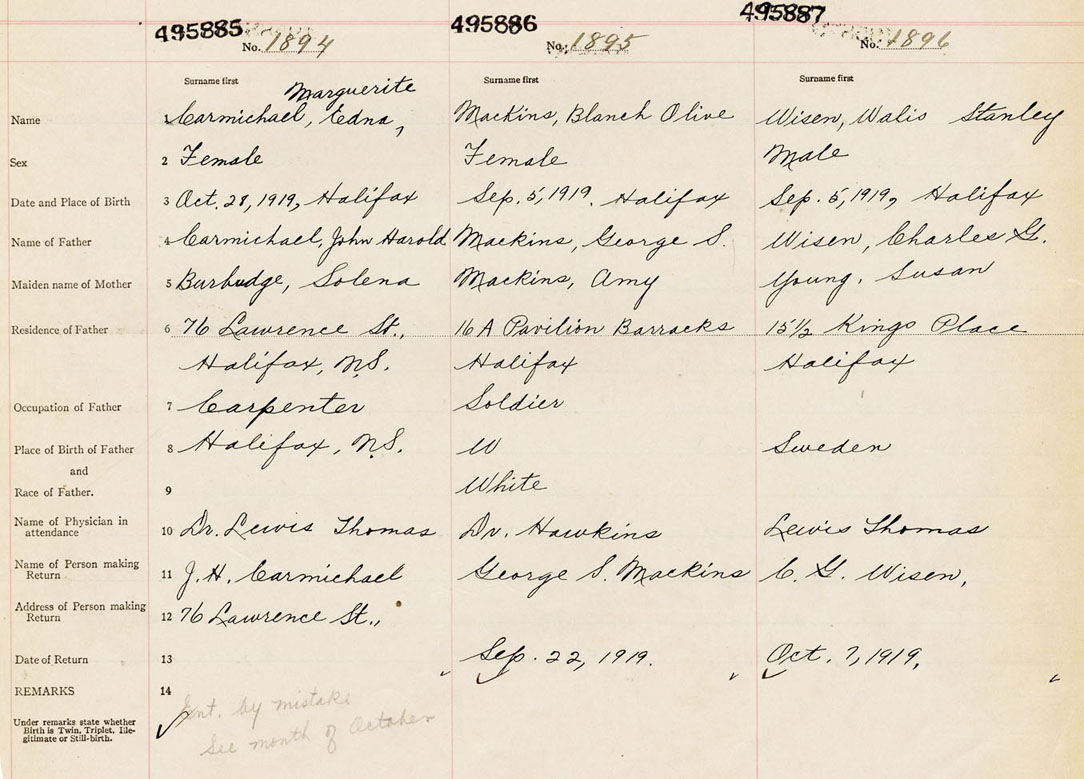 495885 495886 495887
No. 1894 No. 1895 No. 1896
Surname first Surname first Surname first
Marguerite
Name 1 Carmichael, Edna, Mackins, Blanch Olive Wisen, Walis Stanley
Sex 2 Female Female Male
Date and Place of Birth 3 Oct. 28, 1919, Halifax Sep. 5, 1919. Halifax Sep. 5, 1919, Halifax
Name of Father 4 Carmichael, John Harold Mackins, George S. Wisen, Charles G.
Maiden name of Mother 5 Burbudge, Solena Mackins, Amy Young, Susan
Residence of Father 6 76 Lawrence St., 16 A Pavilion Barracks 15½ Kings Place
Halifax, N.S. Halifax Halifax
Occupation of Father 7 Carpenter Soldier
Place of Birth of Father 8 Halifax, N.S. W Sweden
and
Race of Father. 9 White
Name of Physician in
attendance 10 Dr. Lewis Thomas Dr. Hawkins Lewis Thomas
Name of Person making
Return 11 J. H. Carmichael George S. Mackins C. G. Wisen,
Address of Person making
Return 12 76 Lawrence St.,
Date of Return 13 Sep. 22, 1919. Oct. 7, 1919.
REMARKS 14 Ent. by mistake
See month of October
Under remarks state whether
Birth is Twin, Triplet, Ille-
gitimate or Still-birth.